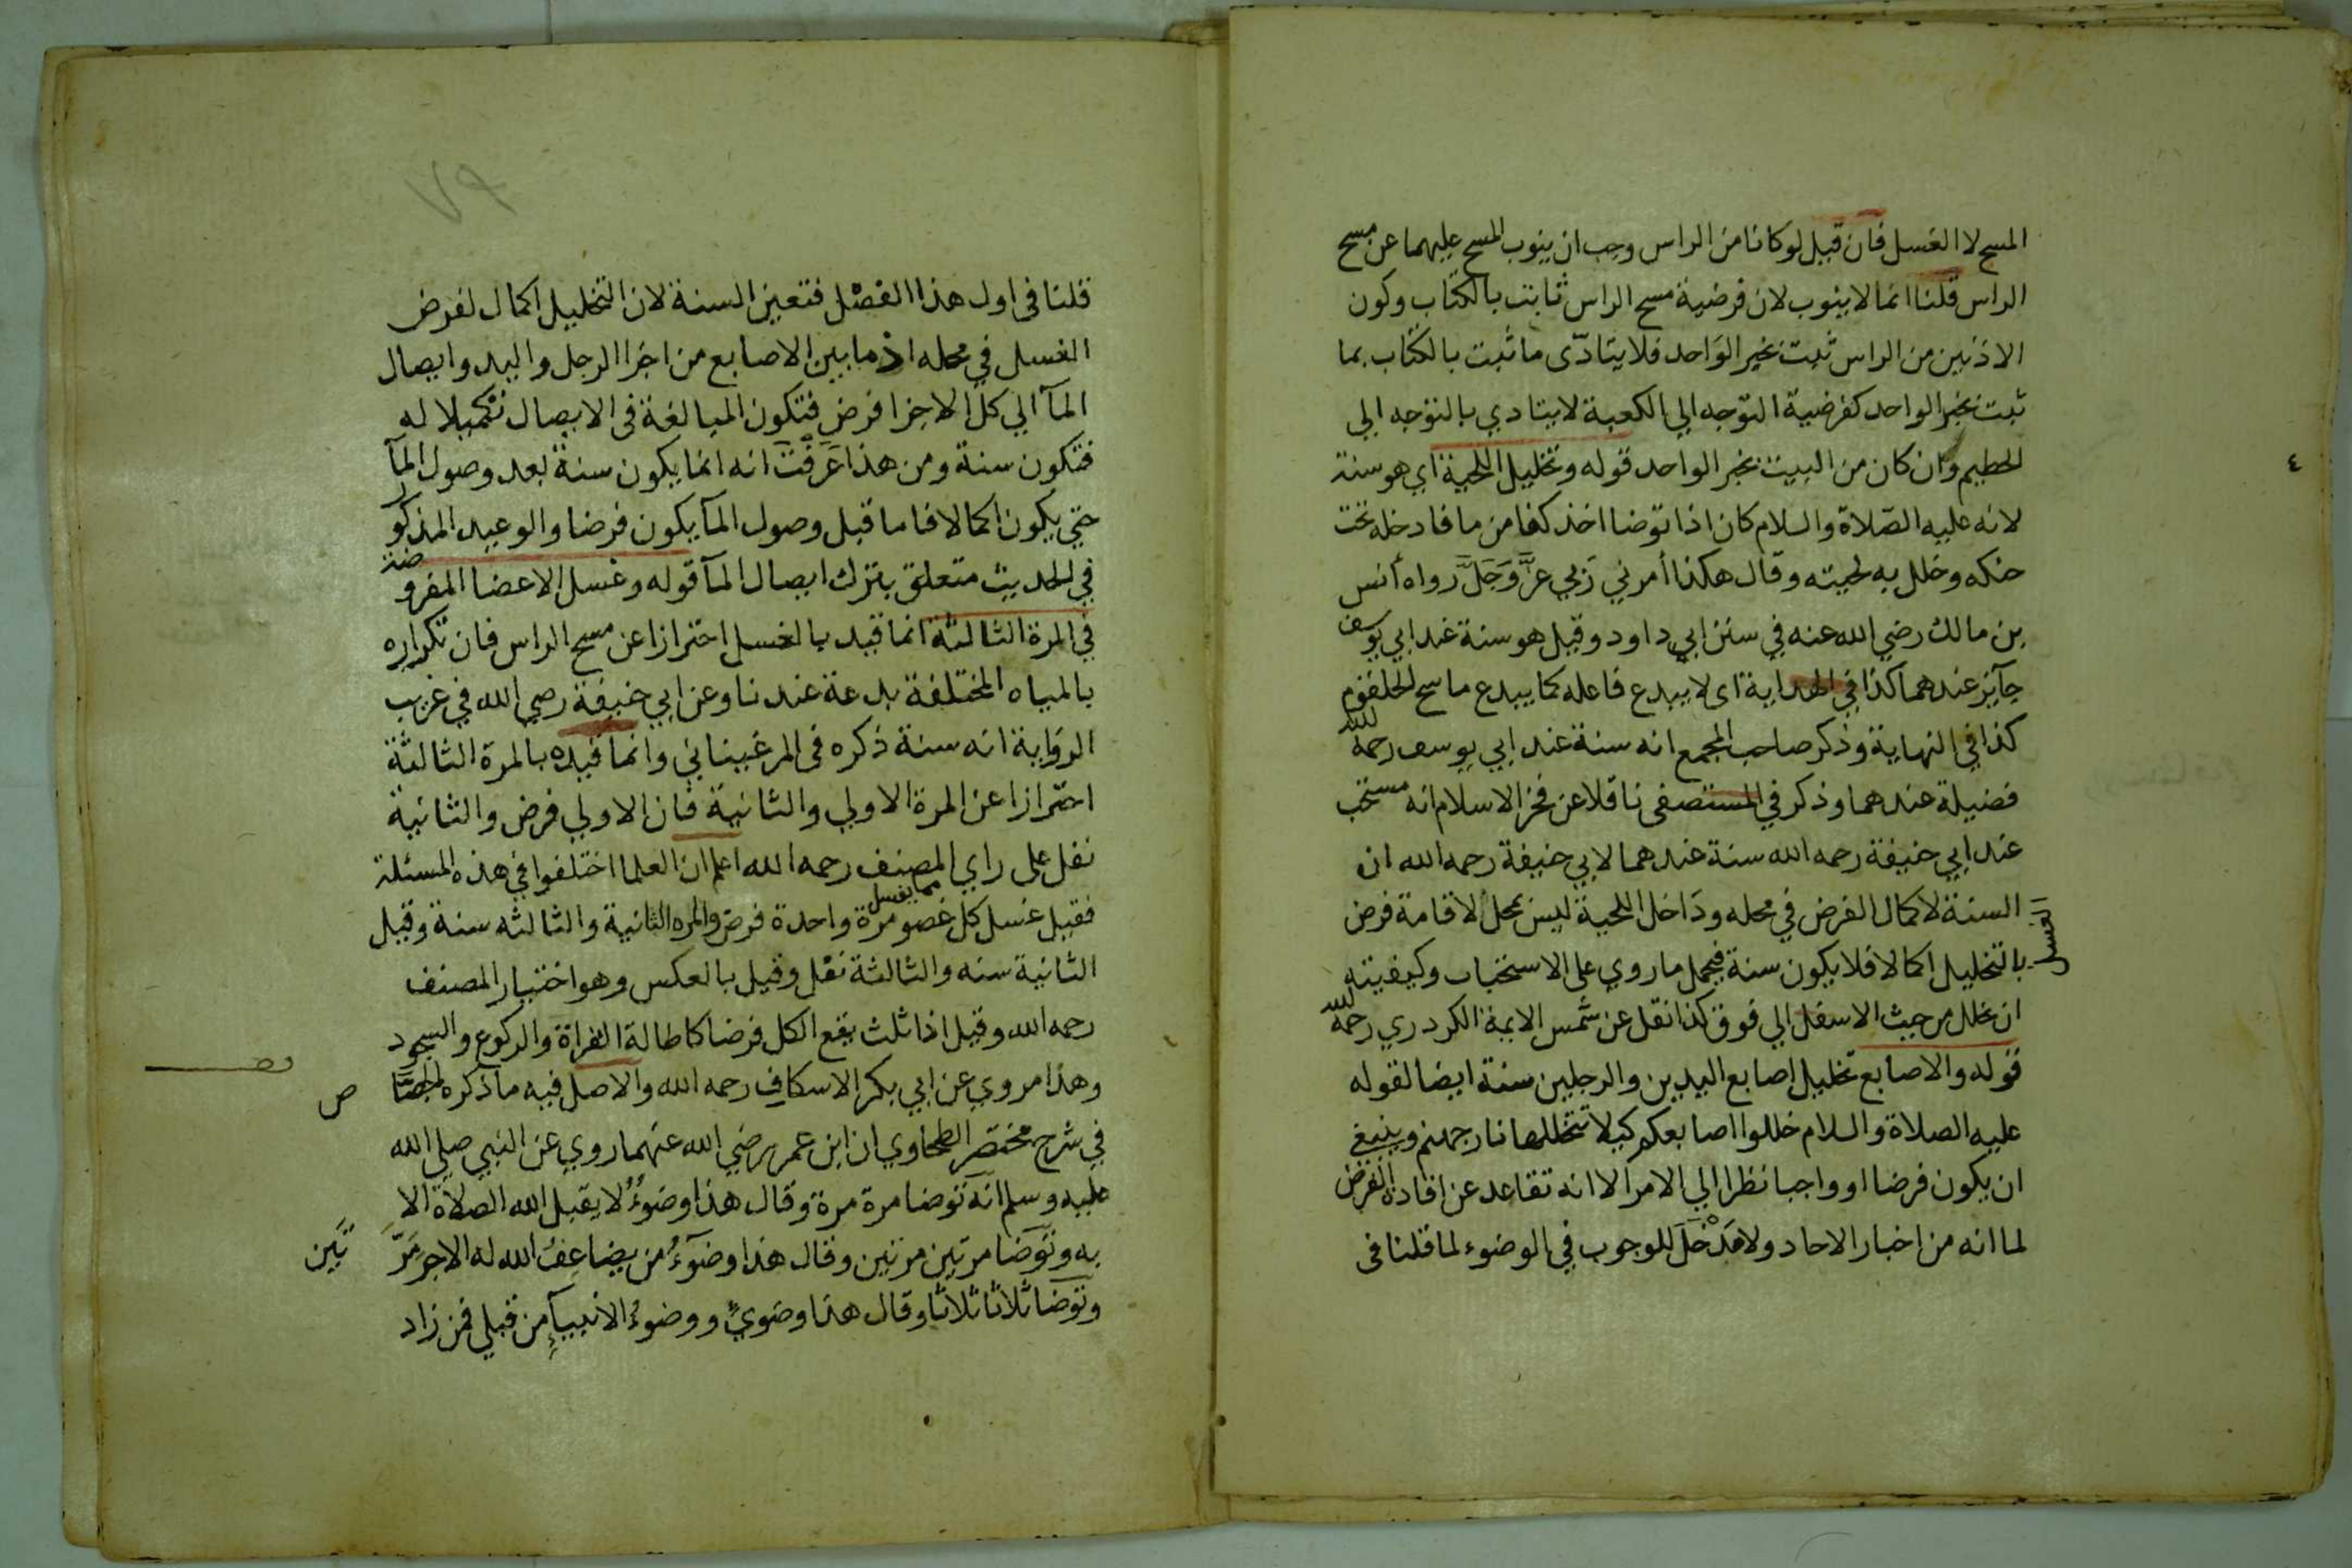 المسح لا الغسل فان قيل لو كانا من الراس وجب ان ينوب المسح عليهما عن مسح
الراس قلنا انما لا ينوب لان فرضية مسح الراس ثابت بالكتاب وكون
الاذنين من الراس ثبت بخبر الواحد فلا يتادى ما ثبت بالكتاب بما
ثبت بخبر الواحد كفرضية التوجه الي الكعبة لا يتادي بالتوجه الي
الحطيم وان كان من البيت بخبر الواحد قوله وتخليل اللحية اي هو سنة
لانه عليه الصلاة والسلام كان اذا توضا اخذ كفا من ما فادخله تحت
حنكه وخلل به لحيته وقال هكذا أمرني رَبي عزَّ وَجَلَّ رواه أنس
بن مالك رضي الله عنه في سنن ابي داود وقيل هو سنة عند ابي يوسف
جآيز عندهما كذا في الهداية اى لا يبدع فاعله كما يبدع ماسح الحلقوم
كذا في النهاية وذكر صاحب المجمع انه سنة عند ابي يوسف رحمه الله
فضيلة عندهما وذكر في المستصفى ناقلا عن فخر الاسلام انه مستحب
عند ابي حنيفة رحمه الله سنة عندهما لابي حنيفة رحمه الله ان
السنة لاكمال الفرض في محله ودَاخل اللحية ليس بمحل لاقامة فرض
الغسل
بالتخليل اكمالا فلا يكون سنة فيحمل ما روي على الاستحباب وكيفيته
ان يخلل من حيث الاسفل الي فوق كذا نقل عن شمس الايمة الكردري رحمه الله
قوله والاصابع تخليل اصابع اليدين والرجلين سنة ايضا لقوله
عليه الصلاة والسلام خللوا اصابعكم كيلا تتخللها نار جهنم وينبغي
ان يكون فرضا او واجبا نظرا الي الامر الا انه تقاعد عن افادة الفرض
لما انه من اخبار الاحاد ولا مَدْخَلَ للوجوب في الوضوء لما قلنا فى
٤
٧٩
قلنا فى اول هذا الفصْل فتعين السنة لان التخليل اكمال لفرض
الغسل في محله اذ ما بين الاصابع من اجزا الرجل واليد وايصال
المآ الي كل الاجزا فرض فتكون المبالغة فى الايصال تكميلا له
فتكون سنة ومن هذا عَرَفْتَ انه انما يكون سنة بعد وصول المآ
حتي يكون اكمالا فاما قبل وصول المآ يكون فرضا والوعيد المذكور
في الحديث متعلق بترك ايصال المآ قوله وغسل الاعضا المفروضة
في المرة الثالثة انما قيد بالغسل احترازا عن مسح الراس فان تكراره
بالمياه المختلفة بدعة عندنا وعن ابي حنيفة رضي الله في غريب
الرواية انه سنة ذكره فى المرغيناني وانما قيده بالمرة الثالثة
احترازا عن المرة الاولي والثانية فان الاولي فرض والثانية
نفل على راي المصنف رحمه الله اعلم ان العلما اختلفوا في هذه المسئلة
مما يغسل
فقيل غسل كل عضو مرة واحدة فرض والمره الثانية والثالثه سنة وقيل
الثانية سنه والثالثة نفل وقيل بالعكس وهو اختيار المصنف
رحمه الله وقيل اذا ثلث يقع الكل فرضا كاطالة القراة والركوع والسجود
وهذا مروي عن ابي بكر الاسكاف رحمه الله والاصل فيه ما ذكره الجصَّا ص
في شرح مختصر الطحاوي ان ابن عمر رضي الله عنهما روي عن النبي صلي الله
عليه وسلم انه توضا مرة مرة وقال هذا وضوءٌ لا يقبل الله الصلاة الا
به وتوضا مرتين مرتين وقال هذا وضوءُ من يضاعِفُ الله له الاجر مَرَّ تَين
وتوضا ثلاثا ثلاثا وقال هذا وضوئي ووضوءُ الانبيآءِ من قبلي فمن زاد